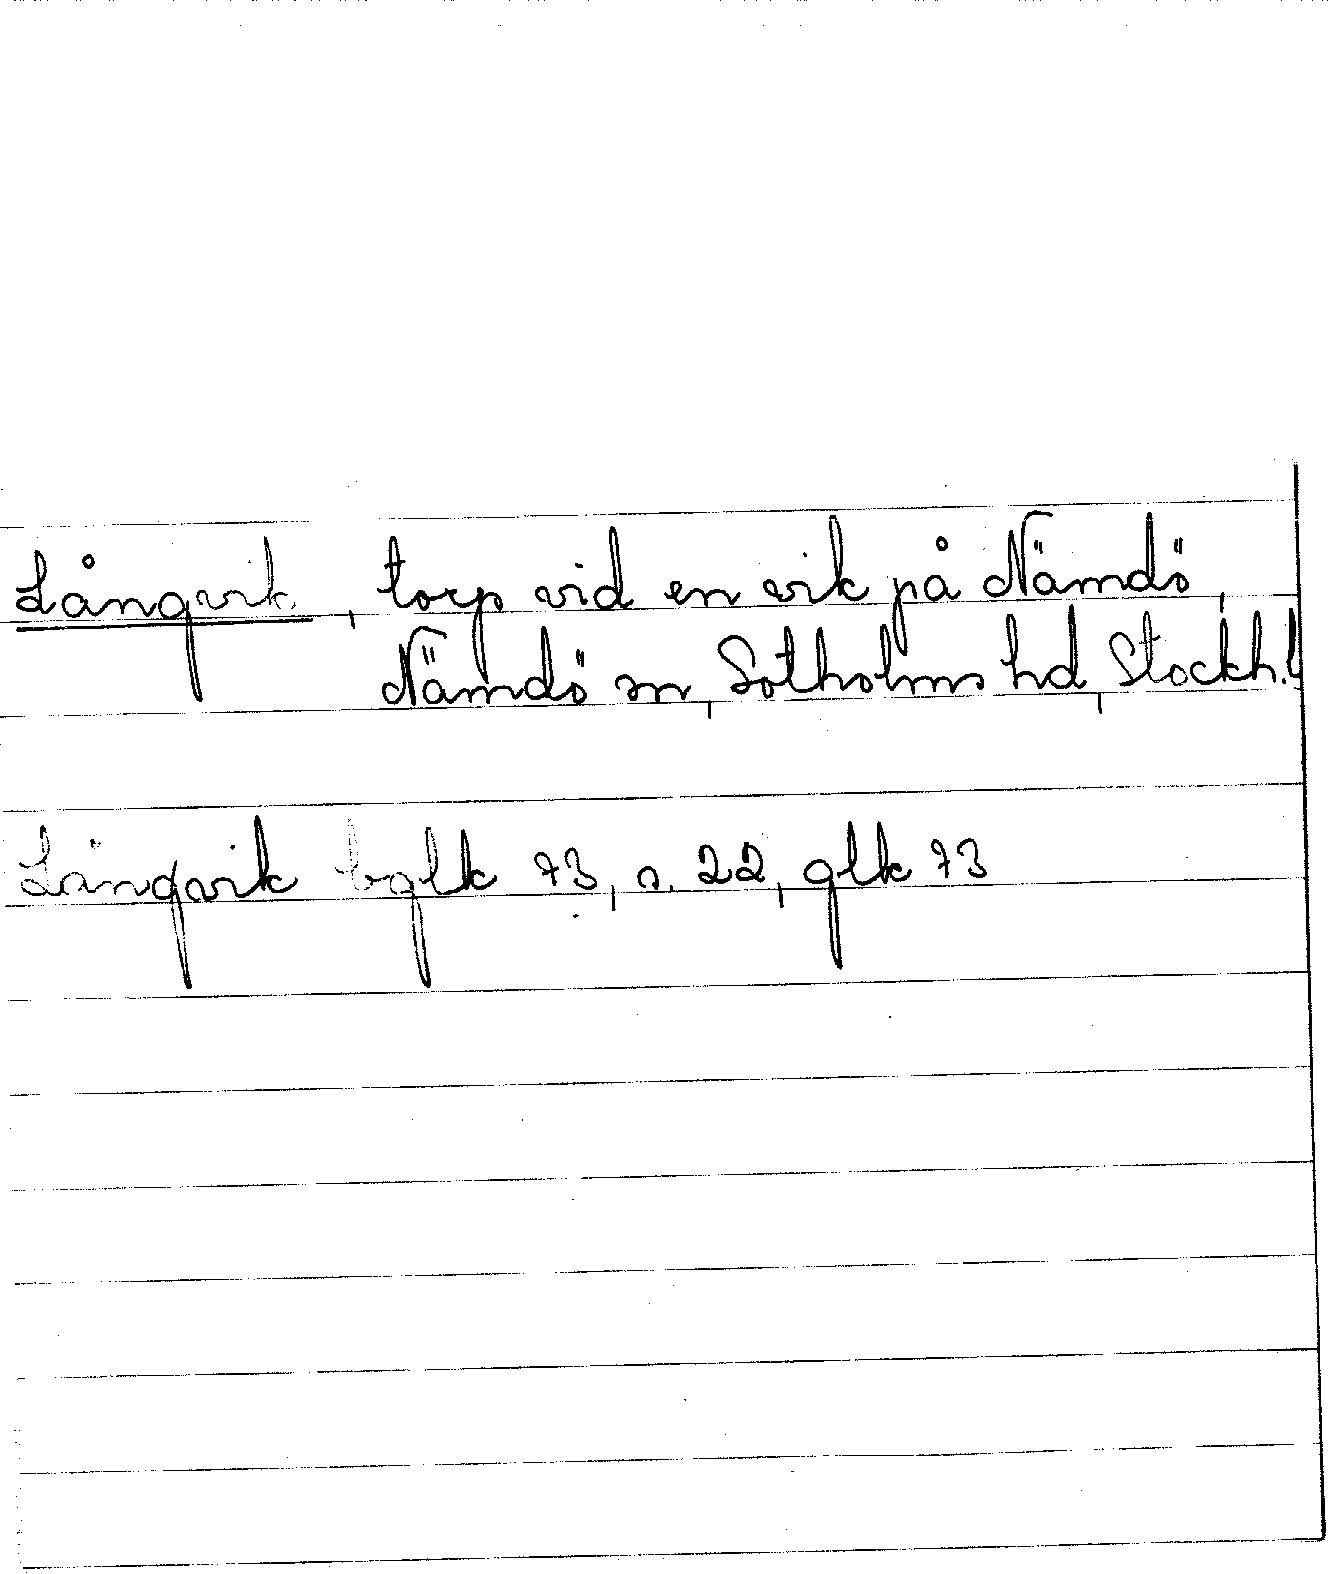 Långvik, torp vid en vik på Nämdö,
Nämdö sn, Sotholms hd, Stockh. l
Långvik bglk 73, s. 22, glk 73